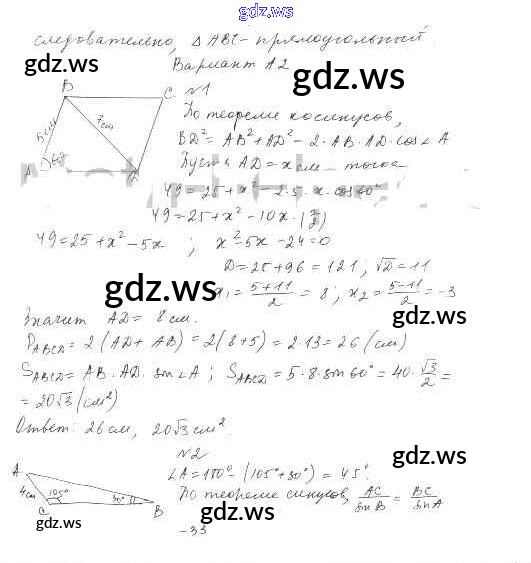 gdz.ws
следовательно, △ABC - прямоугольный.
gdz.ws
Вариант А2
gdz.ws
№1
B
C
5 см
7 см
A
60°
По теореме косинусов,
BD² = AB² + AD² - 2·AB·AD·cos∠A
Пусть AD = x см - тогда
49 = 25 + x² - 2·5·x·cos60°
49 = 25 + x² - 10x·(½)
49 = 25 + x² - 5x ; x² - 5x - 24 = 0
D = 25 + 96 = 121 ; √D = 11
gdz.ws
x₁ = (5+11)/2 = 8 ; x₂ = (5-11)/2 = -3
gdz.ws
Значит AD = 8 см.
P_ABCD = 2(AD + AB) = 2(8+5) = 2·13 = 26 (см)
gdz.ws
S_ABCD = AB·AD·sin∠A ; S_ABCD = 5·8·sin60° = 40·√3/2 =
= 20√3 (см²)
Ответ: 26 см, 20√3 см².
№2
gdz.ws
A
4 см
105°
30°
C
B
∠A = 180° - (105° + 30°) = 45°.
По теореме синусов, AC/sinB = BC/sinA
gdz.ws
gdz.ws
gdz.ws
-33